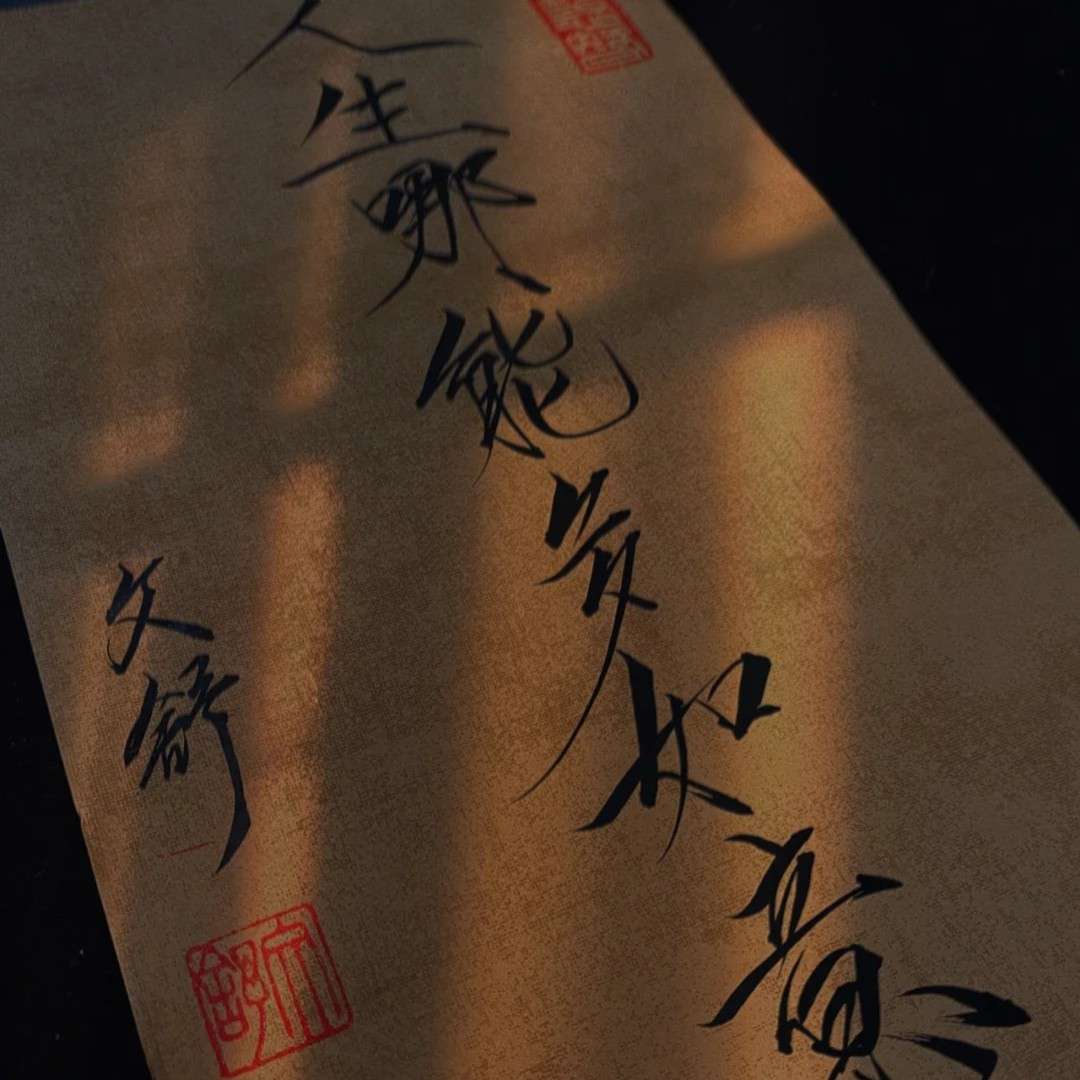 人生哪能多如意
文舒
文舒